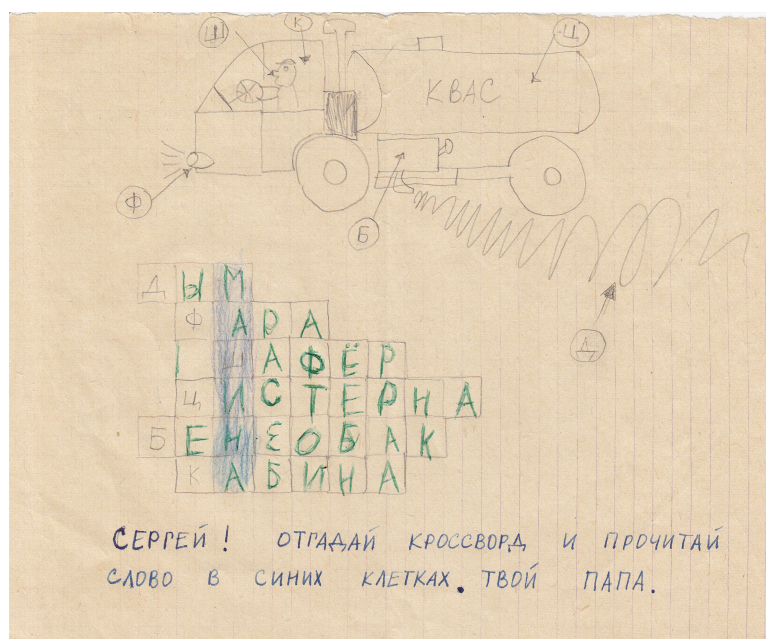 Ш К Ц
КВАС
Ф
Б
Д
ДЫМ
ФАРА
ШАФЁР
ЦИСТЕРНА
БЕНЗОБАК
КАБИНА
СЕРГЕЙ! ОТГАДАЙ КРОССВОРД И ПРОЧИТАЙ
СЛОВО В СИНИХ КЛЕТКАХ. ТВОЙ ПАПА.